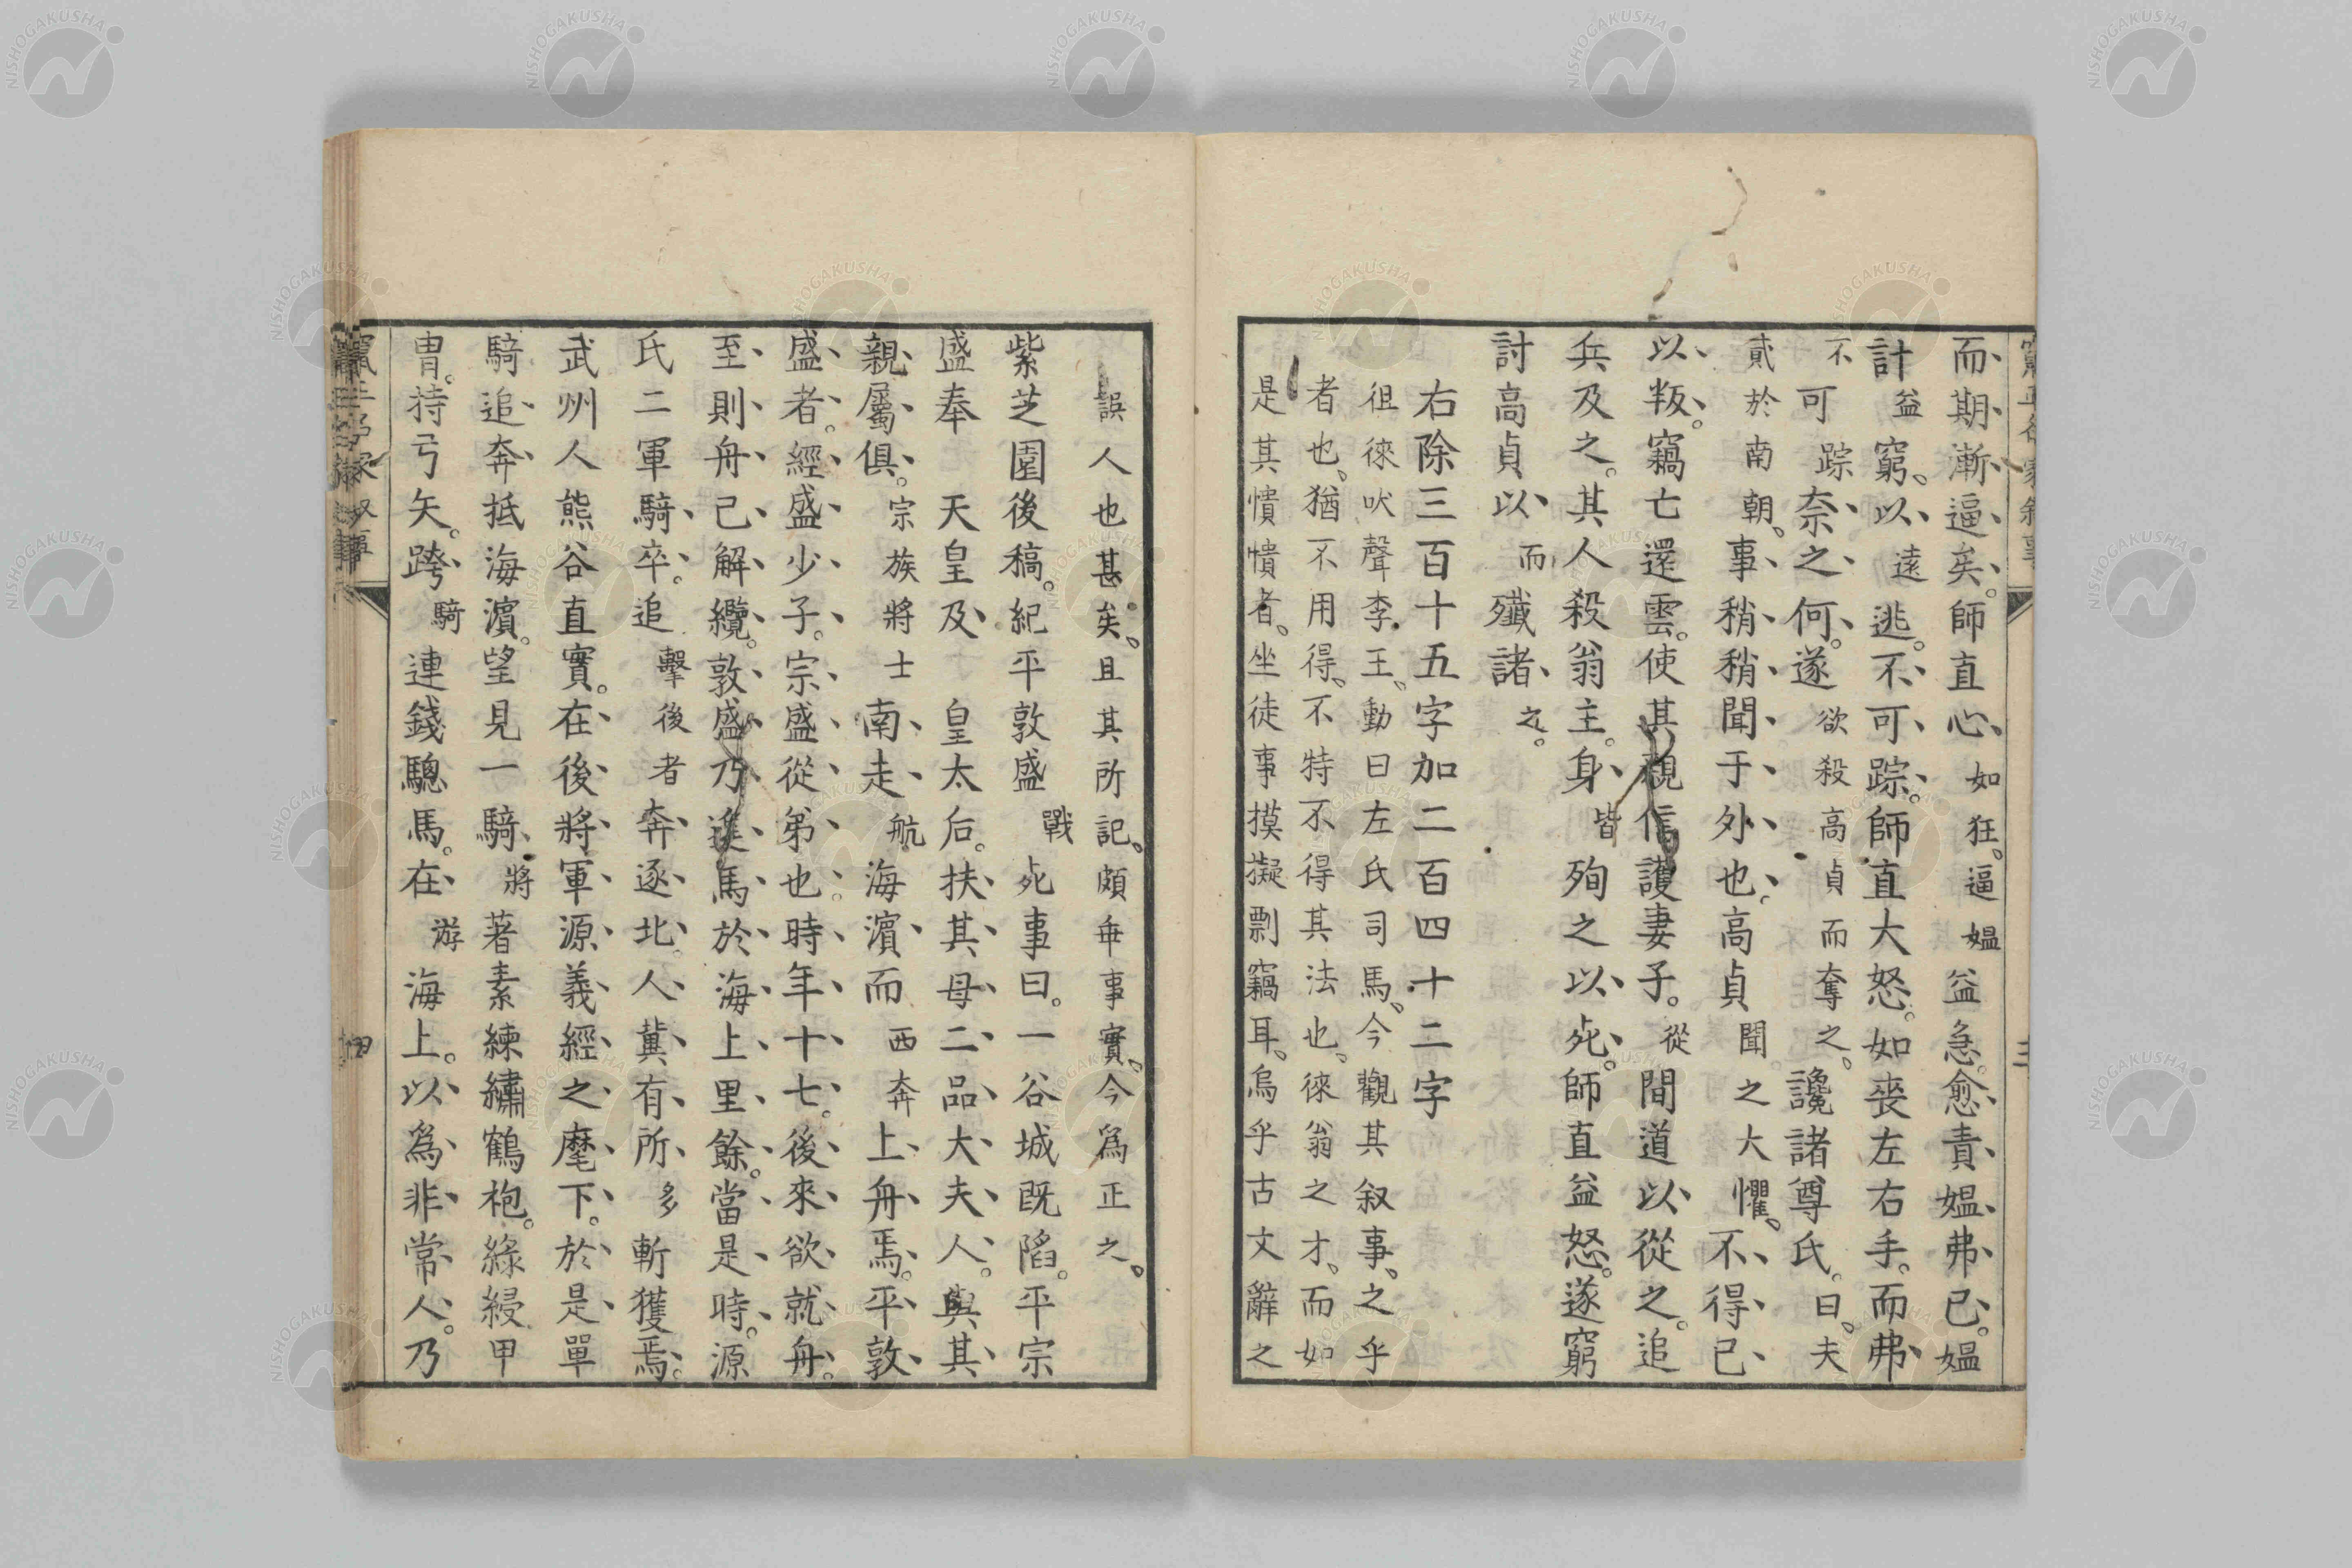 而期漸逼矣。師直心如狂。逼媼益急。愈責媼弗已。媼
計益窮。以遠逃。不可踪。師直大怒。如喪左右手。而弗
不可踪奈之何。遂欲殺高貞而奪之。讒諸尊氏。曰。夫
貳於南朝。事稍稍聞于外也。高貞聞之大懼。不得已
以叛。竊亡還雲。使其親信護妻子。從間道以從之。追
兵及之。其人殺翁主。身皆殉之以死。師直益怒。遂窮
討高貞以而殲諸之。
右除三百十五字加二百四十二字
徂徠吠聲李王。動曰左氏司馬。今觀其叙事。之乎
者也。猶不用得。不特不得其法也。徠翁之才。而如
是其憒憒者。坐徒事摸擬剽竊耳。烏乎古文辭之
誤人也甚矣。且其所記。頗乖事實。今爲正之。
紫芝園後稿。紀平敦盛戰死事曰。一谷城既陷。平宗
盛奉 天皇及 皇太后。扶其母二品大夫人。與其
親屬俱。宗族將士南走航海濱而西奔上舟焉。平敦
盛者。經盛少子。宗盛從弟也。時年十七。後來欲就舟。
至則舟已解纜。敦盛乃進馬於海上里餘。當是時。源
氏二軍騎卒。追擊後者奔逐北。人冀有所多斬獲焉。
武州人熊谷直實。在後將軍源義經之麾下。於是單
騎追奔抵海濱。望見一騎將著素練繡鶴袍。綠綅甲
冑。持弓矢。跨騎連錢驄馬。在游海上。以爲非常人。乃
NISHOGAKUSHA